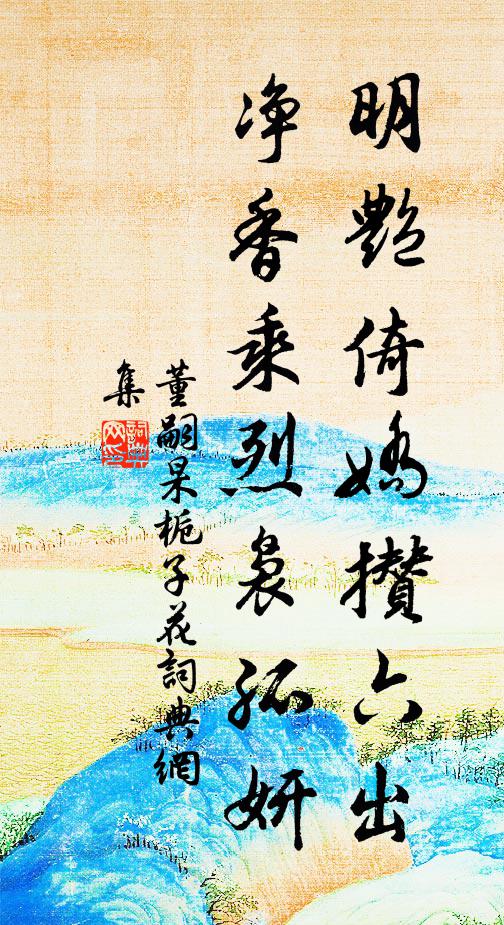 明艷倚嬌攢六出
凈香乘烈裊孤妍
董嗣杲梔子花詞典網
集